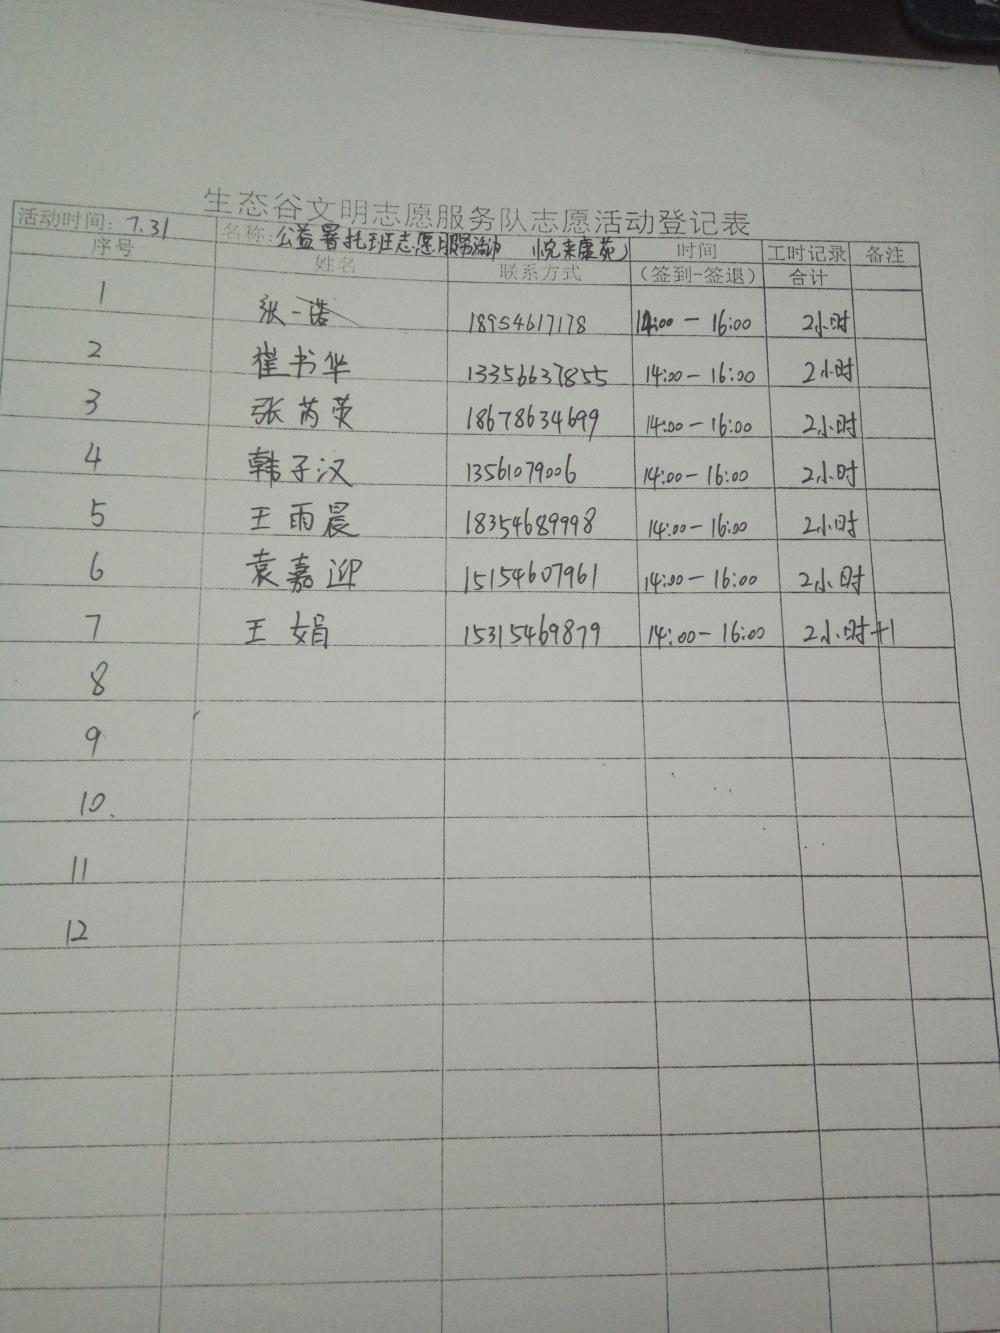 生态谷文明志愿服务队志愿活动登记表
活动时间：7.31 名称：公益暑托班志愿服务活动 （悦来康苑） 时间 工时记录 备注
序号 姓名 联系方式 （签到-签退） 合计
1 张一诺 18954617178 14:00－16:00 2小时
2 崔书华 13356637855 14:00－16:00 2小时
3 张芮荧 18678634699 14:00－16:00 2小时
4 韩子汉 13561079006 14:00－16:00 2小时
5 王雨晨 18354689998 14:00－16:00 2小时
6 袁嘉迎 15154607961 14:00－16:00 2小时
7 王娟 15315469879 14:00－16:00 2小时+1
8
9
10.
11
12